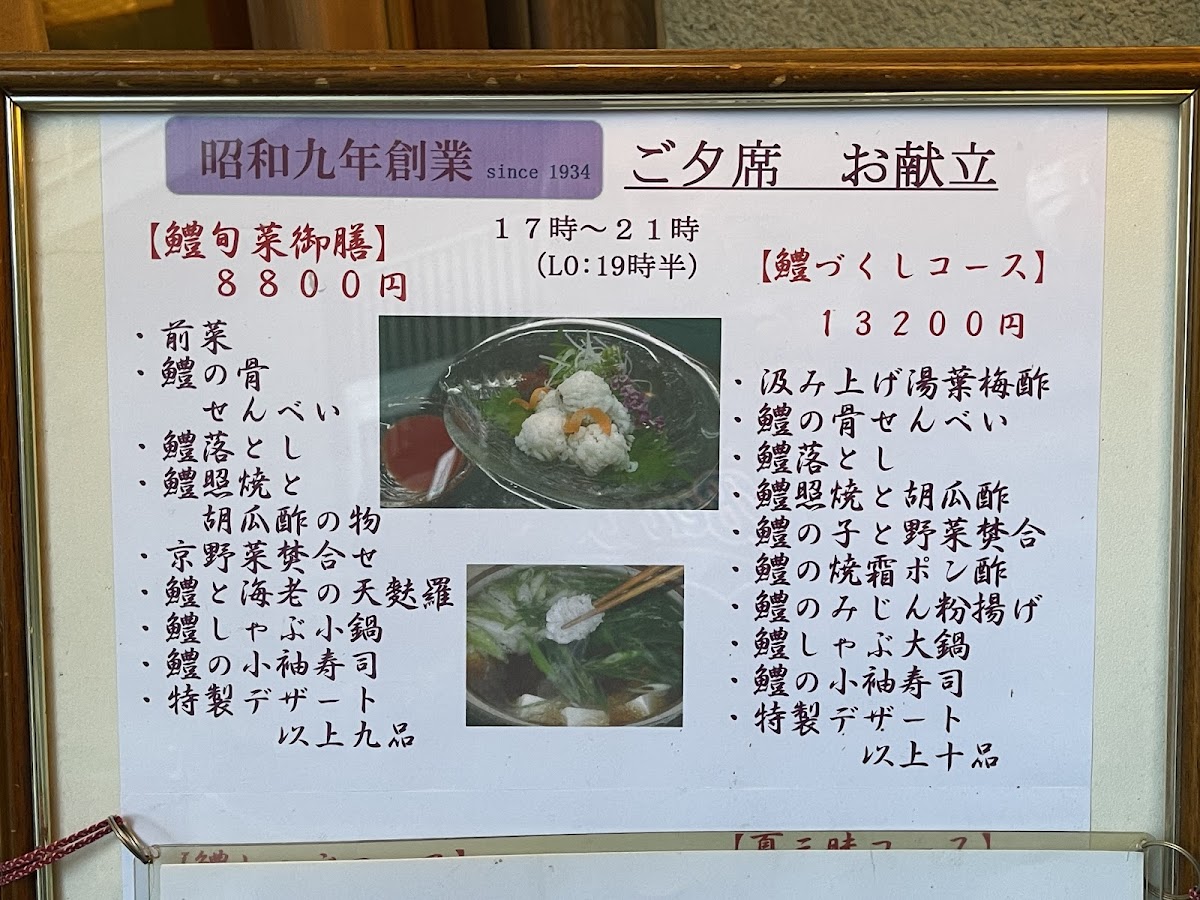 昭和九年創業 since 1934
ご夕席　お献立
１７時～２１時
(LO:19時半)
【鱧旬菜御膳】
８８００円
・前菜
・鱧の骨
せんべい
・鱧落とし
・鱧照焼と
胡瓜酢の物
・京野菜焚合せ
・鱧と海老の天麩羅
・鱧しゃぶ小鍋
・鱧の小袖寿司
・特製デザート
以上九品
【鱧づくしコース】
１３２００円
・汲み上げ湯葉梅酢
・鱧の骨せんべい
・鱧落とし
・鱧照焼と胡瓜酢
・鱧の子と野菜焚合
・鱧の焼霜ポン酢
・鱧のみじん粉揚げ
・鱧しゃぶ大鍋
・鱧の小袖寿司
・特製デザート
以上十品